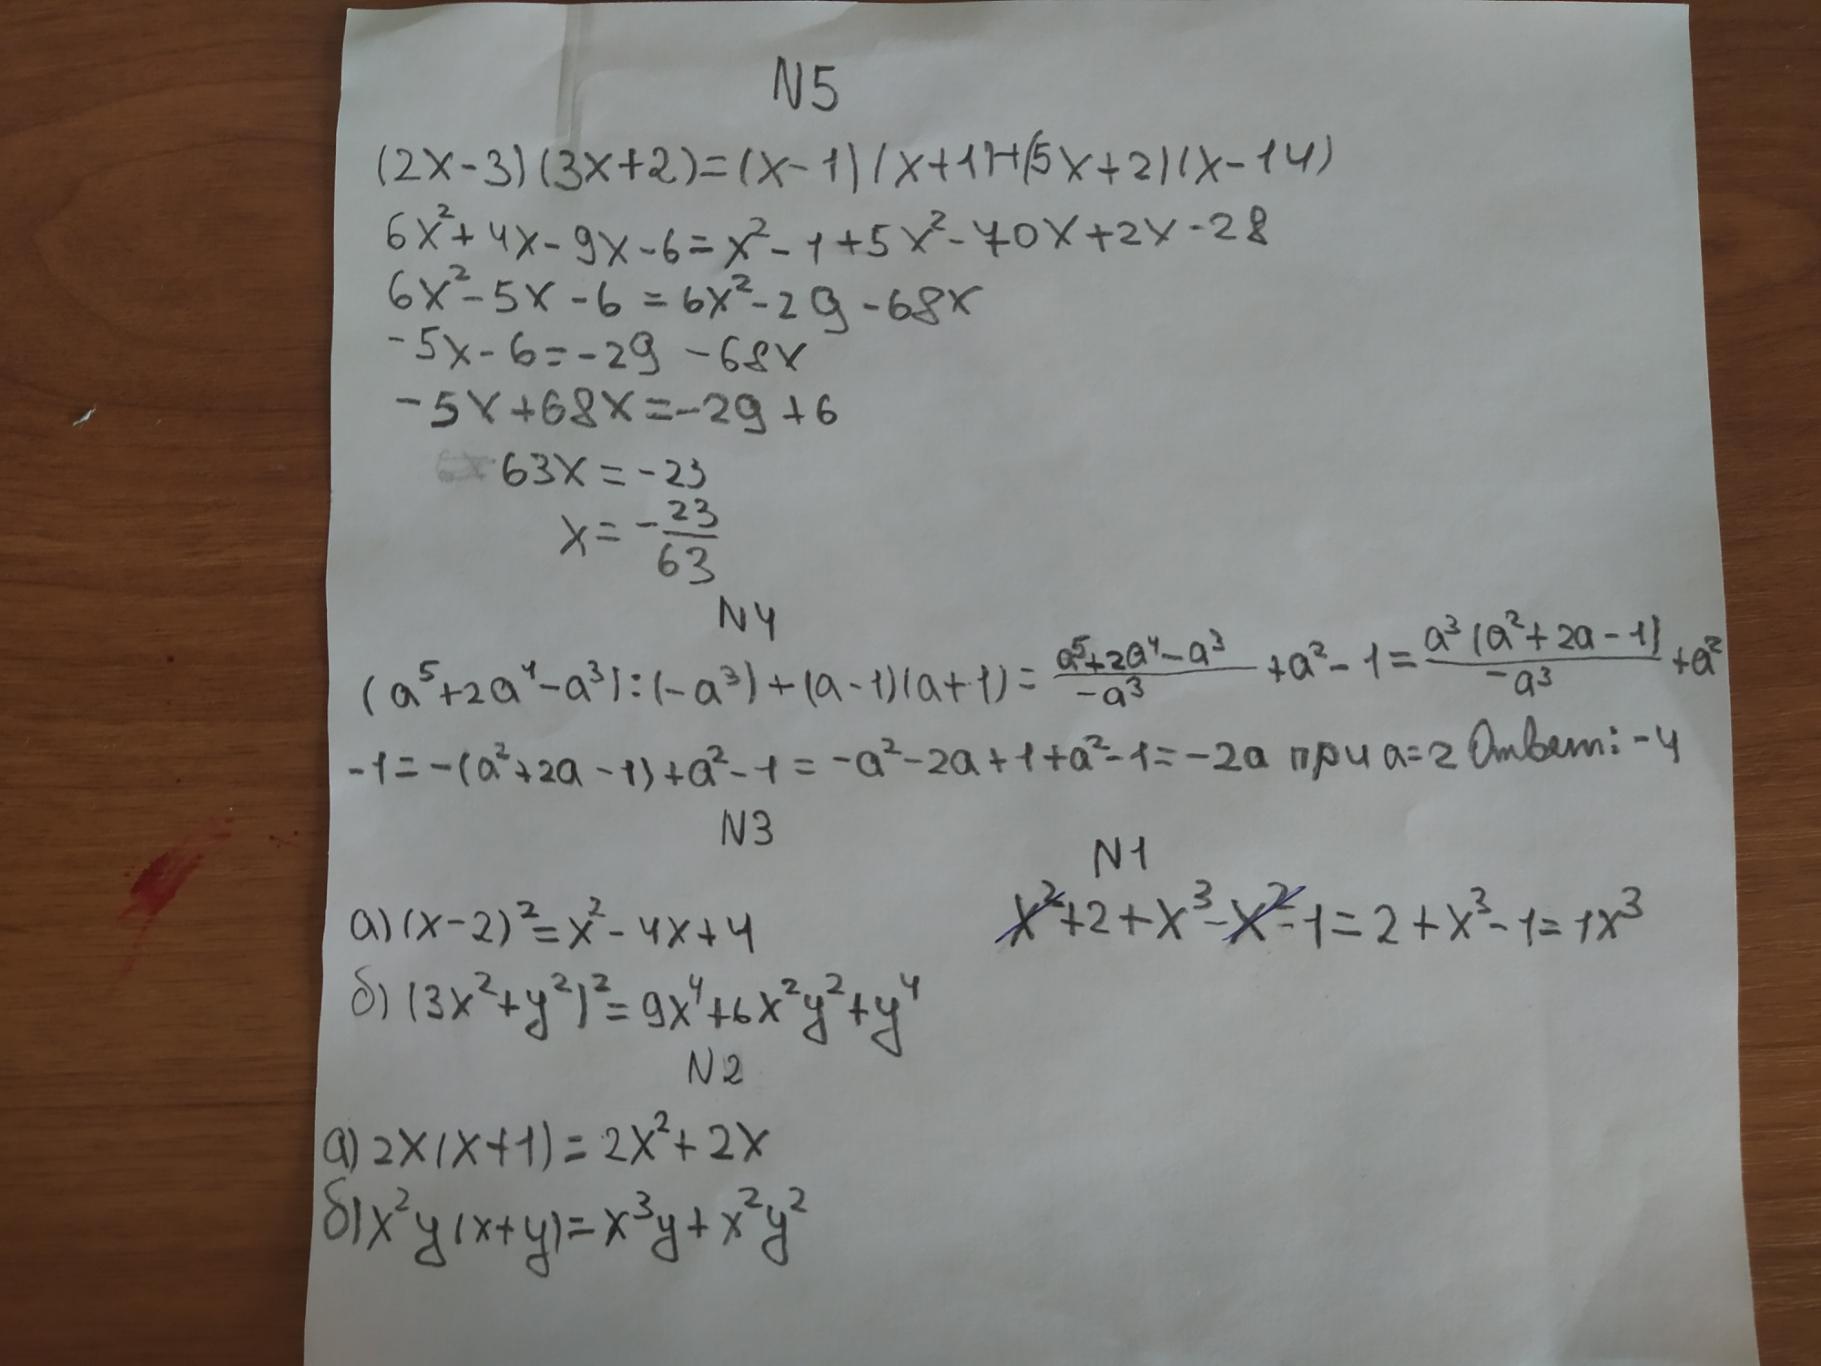 N5
(2x-3)(3x+2)=(x-1)(x+1)+(5x+2)(x-14)
6x²+4x-9x-6=x²-1+5x²-70x+2x-28
6x²-5x-6=6x²-29-68x
-5x-6=-29-68x
-5x+68x=-29+6
63x=-23
x=-23/63
N4
(a⁵+2a⁴-a³):(-a³)+(a-1)(a+1)=(a⁵+2a⁴-a³)/(-a³)+a²-1=a³(a²+2a-1)/(-a³)+a²
-1=-(a²+2a-1)+a²-1=-a²-2a+1+a²-1=-2a при a=2 Ответ:-4
N3
а)(x-2)²=x²-4x+4
б)(3x²+y²)²=9x⁴+6x²y²+y⁴
N1
x²+2+x³-x²-1=2+x³-1=1x³
N2
а)2x(x+1)=2x²+2x
б)x²y(x+y)=x³y+x²y²